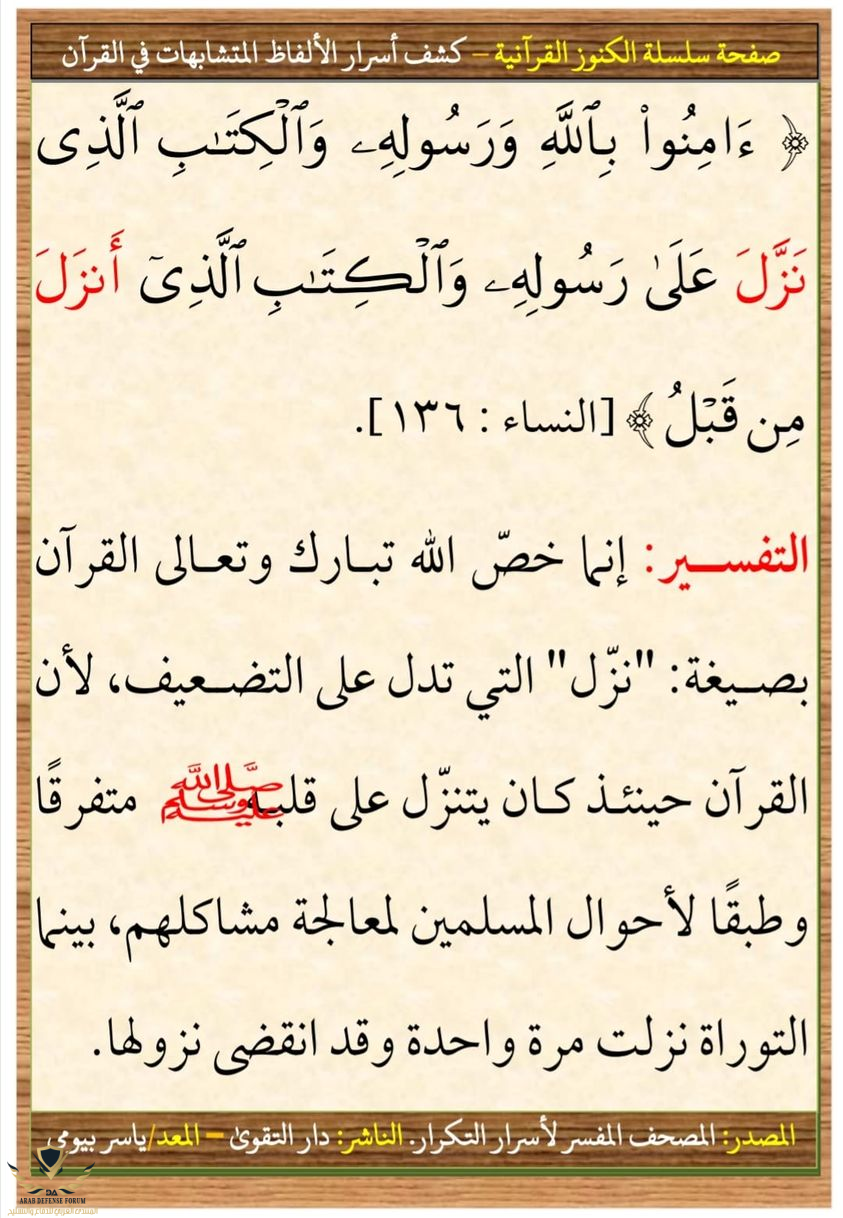 صفحة سلسلة الكنوز القرآنية – كشف أسرار الألفاظ المتشابهات في القرآن
﴿ ءَامِنُوا۟ بِٱللَّهِ وَرَسُولِهِۦ وَٱلْكِتَـٰبِ ٱلَّذِى
نَزَّلَ عَلَىٰ رَسُولِهِۦ وَٱلْكِتَـٰبِ ٱلَّذِىٓ أَنزَلَ
مِن قَبْلُ ﴾ [النساء : ١٣٦].
التفســـير: إنما خصّ الله تبـارك وتعـالى القرآن
بصـيغة: "نزّل" التي تدل على التضـعيف، لأن
القرآن حينئـذ كـان يتنزّل على قلبـه ﷺ متفرقًا
وطبقًا لأحوال المسلمين لمعالجة مشاكلهم، بينما
التوراة نزلت مرة واحدة وقد انقضى نزولها.
المصدر: المصحف المفسر لأسرار التكرار. الناشر: دار التقوىٰ – المعد/ياسر بيومى
DA
ARAB DEFENSE FORUM
المنتدى العربي للدفاع والتسليح